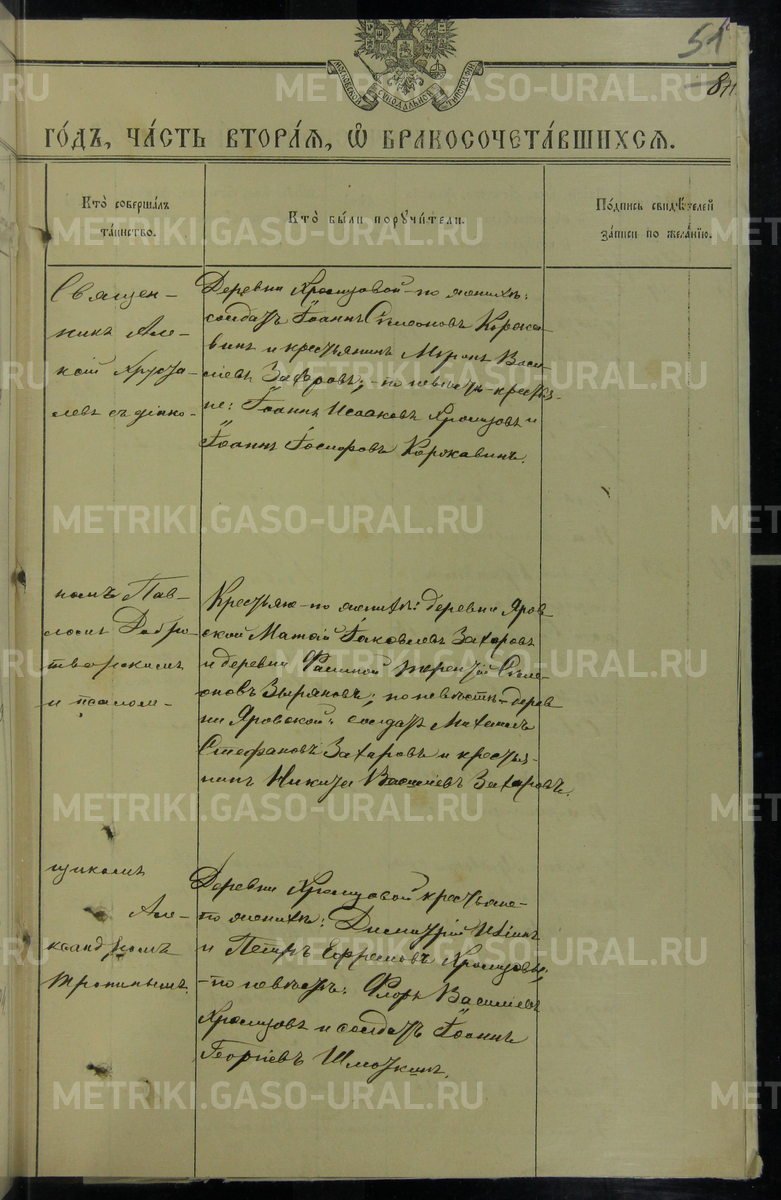 51
МОСКОВСКОЙ СѶНОДАЛЬН ТИПОГРАФІИ
ГО́ДЪ, ЧА́СТЬ ВТОРА́Я, Ѡ БРАКОСОЧЕТА́ВШИХСЯ.
Кто̀ соверша́лъ
та́инство.
Кто̀ бы́ли порꙋчи́тели.
По́дпись свидѣ́телей
за́писи по жела́нію.
Священ-
никъ Але-
ксій Хруста-
левъ съ діако-
Деревни Храмцовой-по женихѣ:
солдатъ Іоаннъ Симеоновъ Корока-
винъ и крестьянинъ Миронъ Васи-
лievъ Захаровъ; -по невѣстѣ-крестья-
не: Іоаннъ Исааковъ Храмцовъ и
Іоаннъ Іосифовъ Корокавинъ.
номъ Пав-
ломъ Добро-
творскимъ
и псалом-
Крестьяне-по женихѣ: деревни Яров-
ской Матѳій Іаковлевъ Захаровъ
и деревни Терентій Симе-
оновъ Зыряновъ; по невѣстѣ-дерев-
ни Яровской: солдатъ Михаилъ
Стефановъ Захаровъ и крестья-
нинъ Никита Васильевъ Захаровъ.
щикомъ
Але-
ксандромъ
Тропинымъ.
Деревни Храмцовой крестьяне-
по женихѣ: Димитрій Ильинъ
и Петръ Ефремовъ Храмцовы;
-по невѣстѣ: Флоръ Василіевъ
Храмцовъ и солдатъ Іоаннъ
Георгіевъ Шмоткинъ.
METRIKI.GASO-URAL.RU